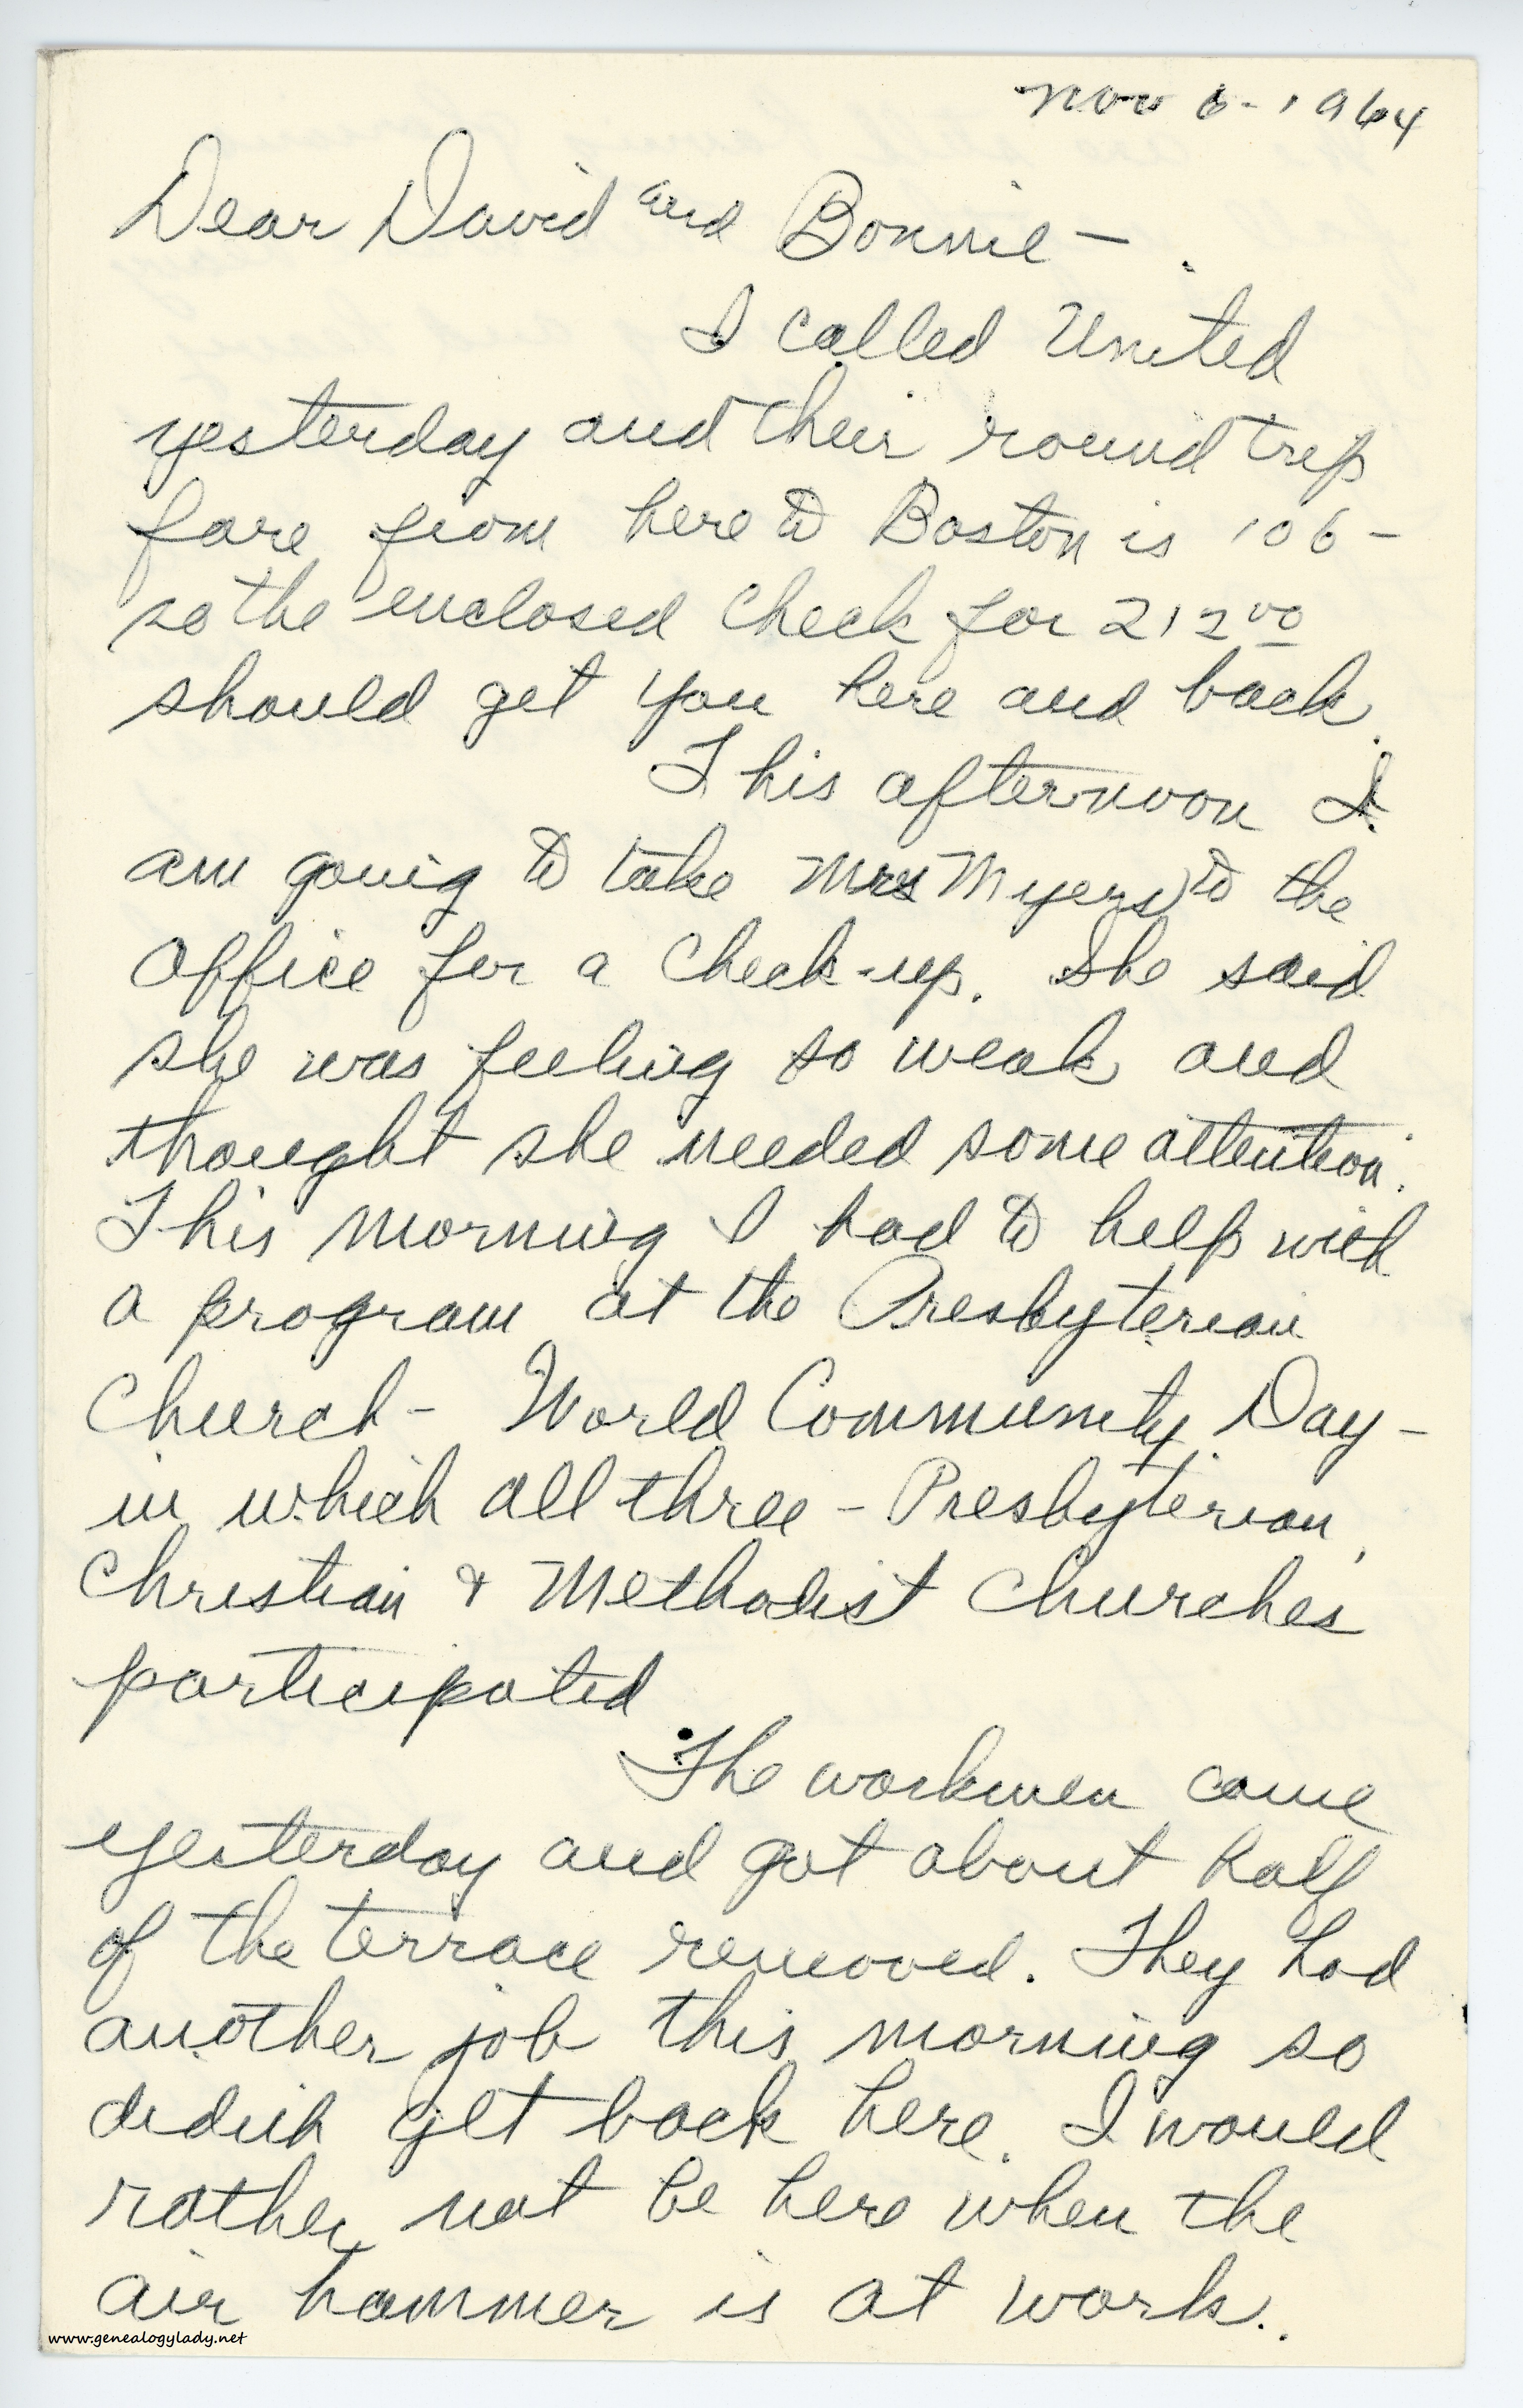 Nov 6-1964
Dear David and Bonnie-
I called United
yesterday and their round trip
fare from here to Boston is 106-
so the enclosed check for 212 00
should get you here and back.
This afternoon I
am going to take Mrs Myers to the
office for a check-up. She said
she was feeling so weak and
thought she needed some attention.
This morning I had to help with
a program at the Presbyterian
Church- World Community Day-
in which all three - Presbyterian,
Christian & Methodist Churches
participated
The workmen came
yesterday and got about half
of the terrace removed. They had
another job this morning so
didnt get back here. I would
rather not be here when the
air hammer is at work.
www.genealogylady.net